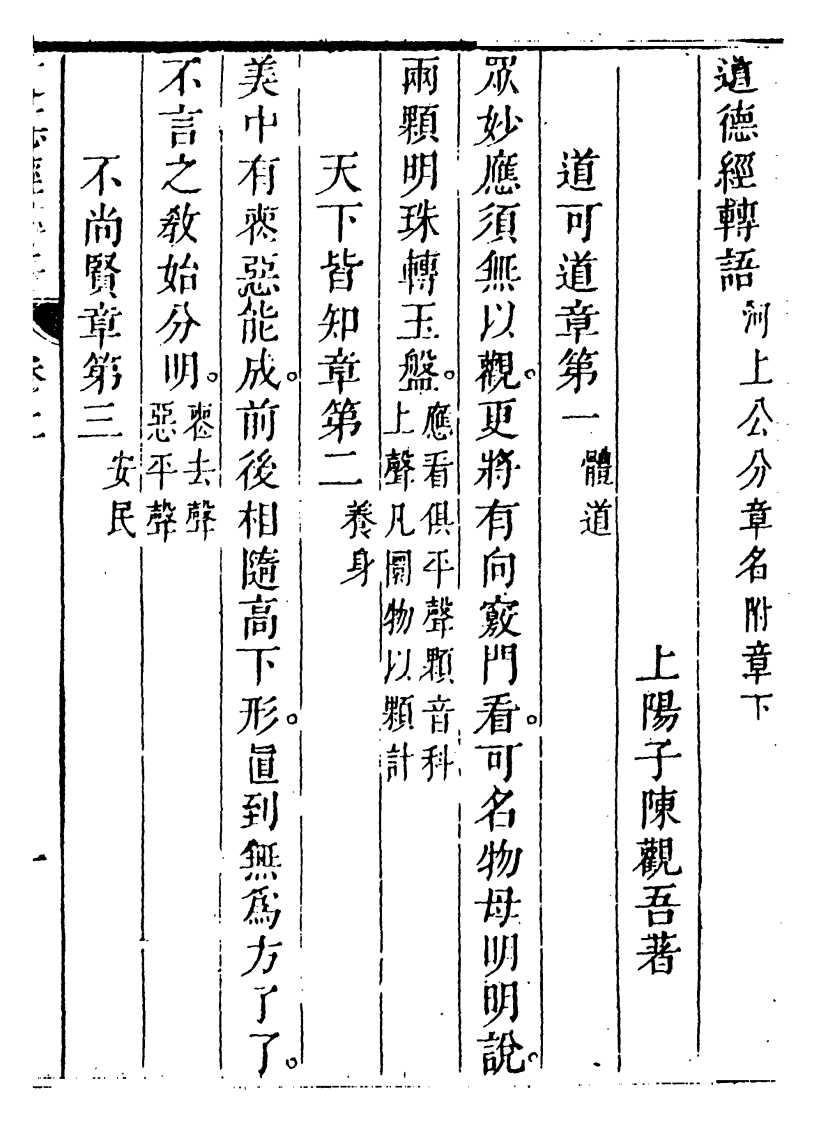 道德經轉語 河上公分章名附章下
上陽子陳觀吾著
道可道章第一 體道
眾妙應須無以觀。更將有向竅門看。可名物母明明說。
兩顆明珠轉玉盤。應看俱平聲顆音科上聲凡圓物以顆計
天下皆知章第二 養身
美中有惡惡能成。前後相隨高下形。直到無爲方了了。
不言之教始分明。惡去聲惡平聲
不尚賢章第三 安民
卷上
一